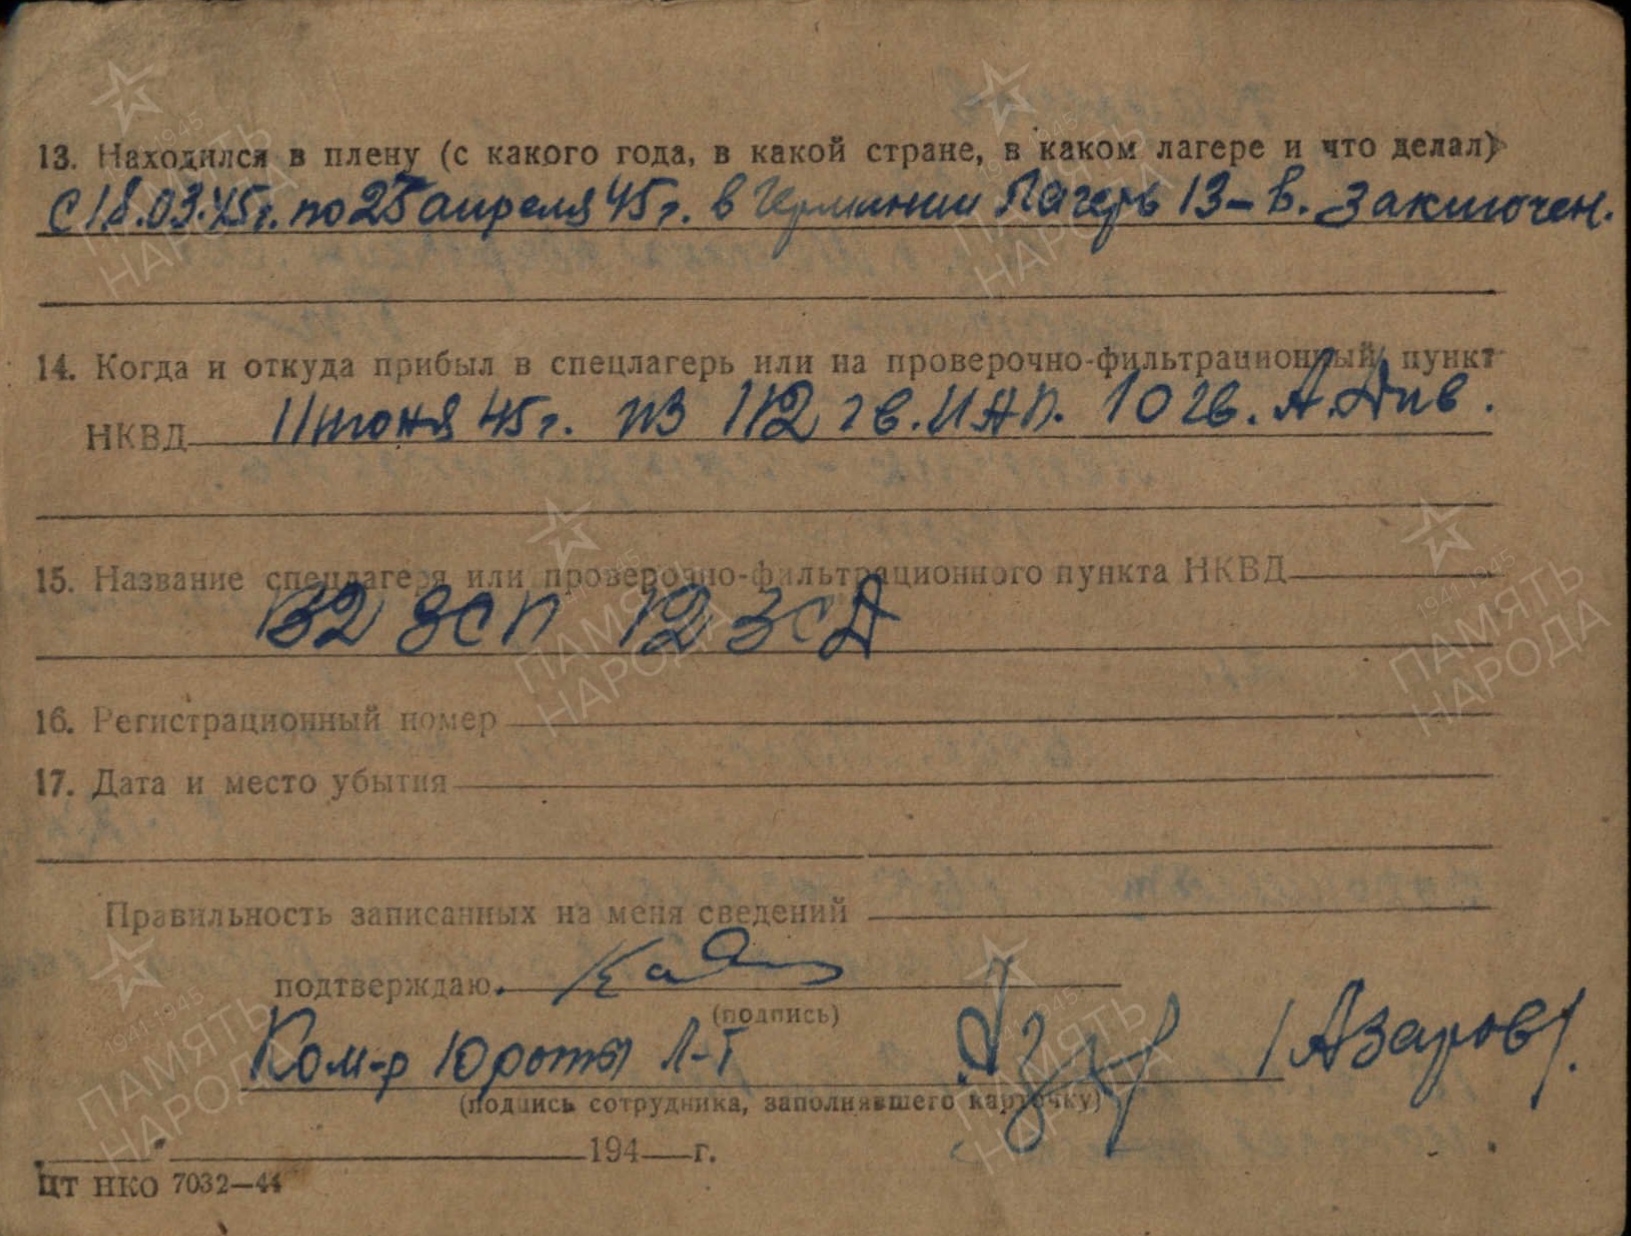 13. Находился в плену (с какого года, в какой стране, в каком лагере и что делал)
с 18.03.45г. по 25 апреля 45г. в Германии Лагерь 13-в. Заключен.
14. Когда и откуда прибыл в спецлагерь или на проверочно-фильтрационный пункт
НКВД 11 июня 45г. из 112 гв. ИАП. 10 гв. А.Див.
15. Название спецлагеря или проверочно-фильтрационного пункта НКВД
132 ЗСП 12 ЗСД
16. Регистрационный номер
17. Дата и место убытия
Правильность записанных на меня сведений
подтверждаю.
(подпись)
Ком-р 10 роты л-т /Азаров/.
(подпись сотрудника, заполнявшего карточку)
194 г.
ЦТ НКО 7032—44
ПАМЯТЬ НАРОДА
1941-1945